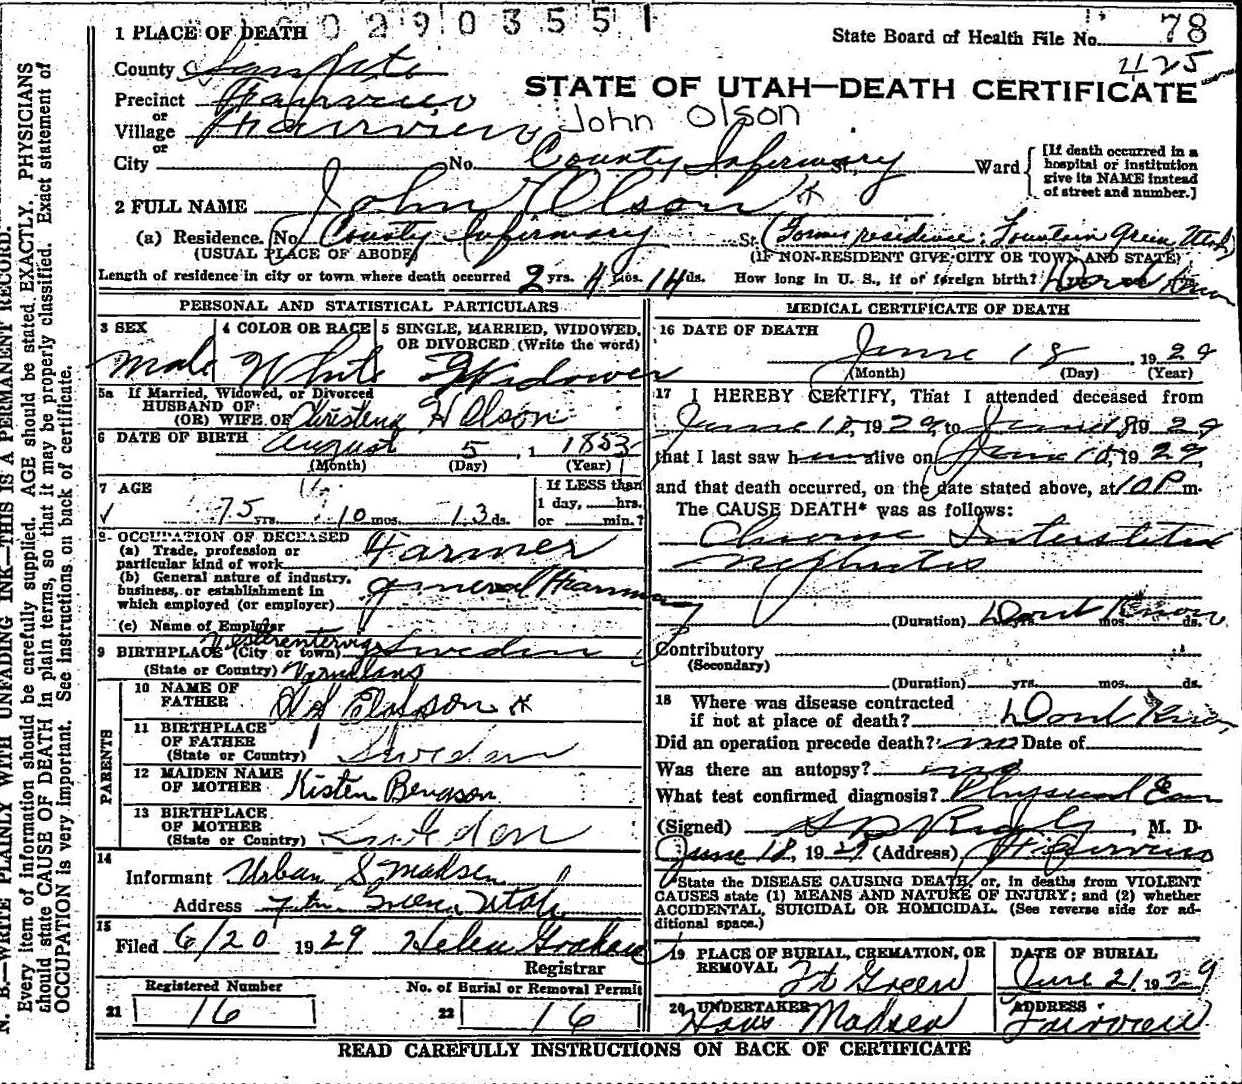 0290355 1
State Board of Health File No. 78
425
1 PLACE OF DEATH
County Sanpete
Precinct Fairview
or
Village Fairview
or
City No. County Infirmary St., Ward
[If death occurred in a hospital or institution give its NAME instead of street and number.]
STATE OF UTAH—DEATH CERTIFICATE
John Olson
2 FULL NAME John Olson
(a) Residence. No. County Infirmary St. (Former residence: Fountain Green Utah)
(USUAL PLACE OF ABODE) (IF NON-RESIDENT GIVE CITY OR TOWN AND STATE)
Length of residence in city or town where death occurred 2 yrs. 4 mos. 14 ds. How long in U. S., if of foreign birth? Dont Know
PERSONAL AND STATISTICAL PARTICULARS
3 SEX Male
4 COLOR OR RACE White
5 SINGLE, MARRIED, WIDOWED, OR DIVORCED (Write the word) Widower
5a If Married, Widowed, or Divorced
HUSBAND OF
(OR) WIFE OF Christena H Olson
6 DATE OF BIRTH August 5, 1853
(Month) (Day) (Year)
7 AGE
75 yrs. 10 mos. 13 ds.
If LESS than 1 day, hrs. or min.?
8 OCCUPATION OF DECEASED
(a) Trade, profession or particular kind of work Farmer
(b) General nature of industry, business, or establishment in which employed (or employer) general Farming
(c) Name of Employer
9 BIRTHPLACE (City or town) Sweden
(State or Country)
PARENTS
10 NAME OF FATHER
11 BIRTHPLACE OF FATHER (State or Country) Sweden
12 MAIDEN NAME OF MOTHER Kisten Bengson
13 BIRTHPLACE OF MOTHER (State or Country) Sweden
14
Informant Urban S Madsen
Address Ftn Green Utah
15
Filed 6/20 1929 Helen Graham
Registrar
Registered Number
21 16
No. of Burial or Removal Permit
22 16
MEDICAL CERTIFICATE OF DEATH
16 DATE OF DEATH
June 18, 1929
(Month) (Day) (Year)
17 I HEREBY CERTIFY, That I attended deceased from
June 18, 1929, to June 18 1929
that I last saw him alive on June 18, 1929,
and that death occurred, on the date stated above, at 10 P m.
The CAUSE DEATH* was as follows:
Chronic Interstitial
Nephritis
(Duration) Dont Know mos. ds.
Contributory
(Secondary)
(Duration) yrs. mos. ds.
18 Where was disease contracted
if not at place of death? Dont Know
Did an operation precede death? no Date of
Was there an autopsy? no
What test confirmed diagnosis? Physical Exam
(Signed) M. D.
June 18, 1929 (Address)
*State the DISEASE CAUSING DEATH, or, in deaths from VIOLENT
CAUSES state (1) MEANS AND NATURE OF INJURY; and (2) whether
ACCIDENTAL, SUICIDAL OR HOMICIDAL. (See reverse side for ad-
ditional space.)
19 PLACE OF BURIAL, CREMATION, OR REMOVAL Ft Green
DATE OF BURIAL June 21 1929
20 UNDERTAKER Hans Madsen
ADDRESS Fairview
READ CAREFULLY INSTRUCTIONS ON BACK OF CERTIFICATE
N. B.—WRITE PLAINLY WITH UNFADING INK—THIS IS A PERMANENT RECORD.
Every item of information should be carefully supplied. AGE should be stated EXACTLY. PHYSICIANS
should state CAUSE OF DEATH in plain terms, so that it may be properly classified. Exact statement of
OCCUPATION is very important. See instructions on back of certificate.